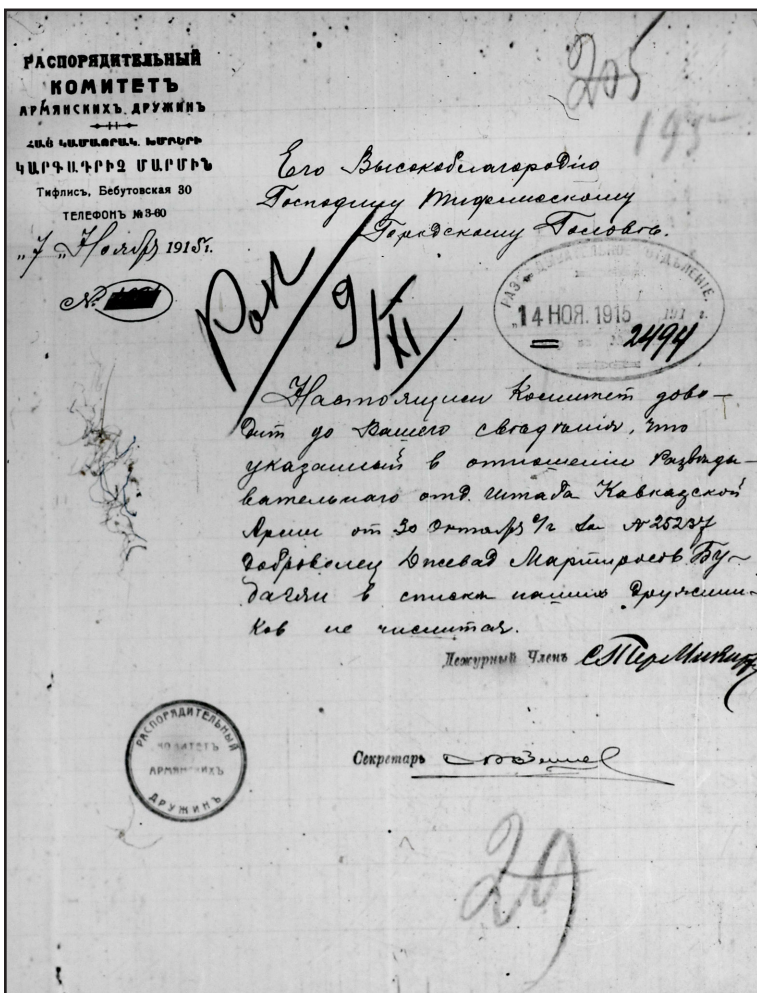 205
195
РАСПОРЯДИТЕЛЬНЫЙ
КОМИТЕТЪ
АРМЯНСКИХЪ ДРУЖИНЪ
ՀԱՅ ԿԱՄԱՒՈՐԱԿ. ԽՄԲԵՐԻ
ԿԱՐԳԱԴՐԻՉ ՄԱՐՄԻՆ
Тифлисъ, Бебутовская 30
ТЕЛЕФОНЪ № 3-60
"7" Ноября 1915 г.
№
Его Высокоблагородію
Господину Тифлисскому
Городскому Головѣ.
9/XI
РАЗВѢДЫВАТЕЛЬНОЕ ОТДѢЛЕНІЕ.
14 НОЯ. 1915 191 г.
2494
Настоящим Комитет дово-
дит до Вашего свѣдѣнія, что
указанный в отношеніи Развѣды-
вательнаго отд. штаба Кавказской
Арміи от 30 Октября с/г за № 25237
доброволец Дживад Мартиросов Бу-
дагян в списках наших дружинни-
ков не числится.
Дежурный Членъ
Секретарь
РАСПОРЯДИТЕЛЬНЫЙ
КОМИТЕТЪ
АРМЯНСКИХЪ
ДРУЖИНЪ
29